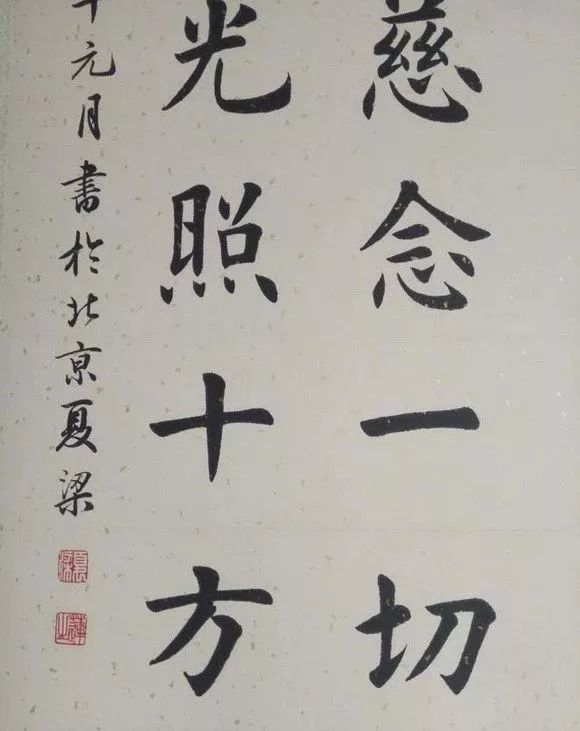 慈念一切
光照十方
元月書於北京夏梁